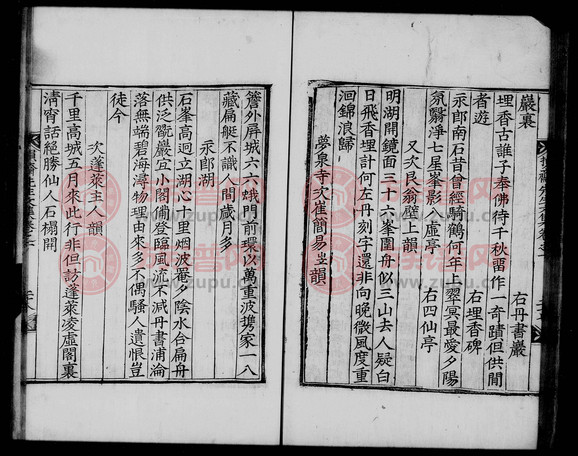 巖裏
右丹書巖
埋香古誰子奉佛待千秋留作一奇蹟但供閒
者遊
右埋香碑
永郎南石昔曾經騎鶴何年上翠冥最愛夕陽
氛翳淨七星峯影入虛亭
右四仙亭
又次艮翁壁上韻
明湖開鏡面三十六峯圍舟似三山去人疑白
日飛香埋計何左丹刻字還非向晚微風度重
洄錦浪歸
夢泉寺次崔簡易岦韻
簷外屏城六六蛾門前環以萬重波携家一入
藏扁艇不識人間歲月多
永郎湖
石峯高迥立湖心十里烟波罨畫陰水合扁舟
供泛覽巖宜小閣備登臨風流不減丹書浦淪
落無端碧海潯物理由來多不偶騷人遺恨豈
徒今
次蓬萊主人韻
千里高城五月來此行非但訪蓬萊凌虛閣裏
清宵話絕勝仙人石榻開